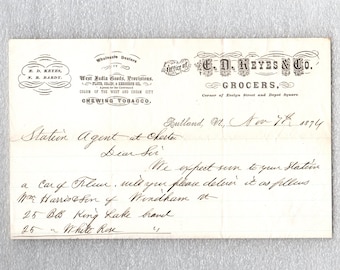 E. D. KEYES,
Wholesale Dealers
IN
West India Goods, Provisions,
Office of
E. D. KEYES & Co.
GROCERS,
Corner of Evelyn Street and Depot Square
CHEWING TOBACCO.
Rutland, Vt, Nov 7th 1874
Station Agent at Chester
Dear Sir
We expect soon to your Station
a car of Flour, will you please deliver it as follows
Wm Harris & Son of Windham Vt
25 Bbls King Lake brand
25 " White Rose "